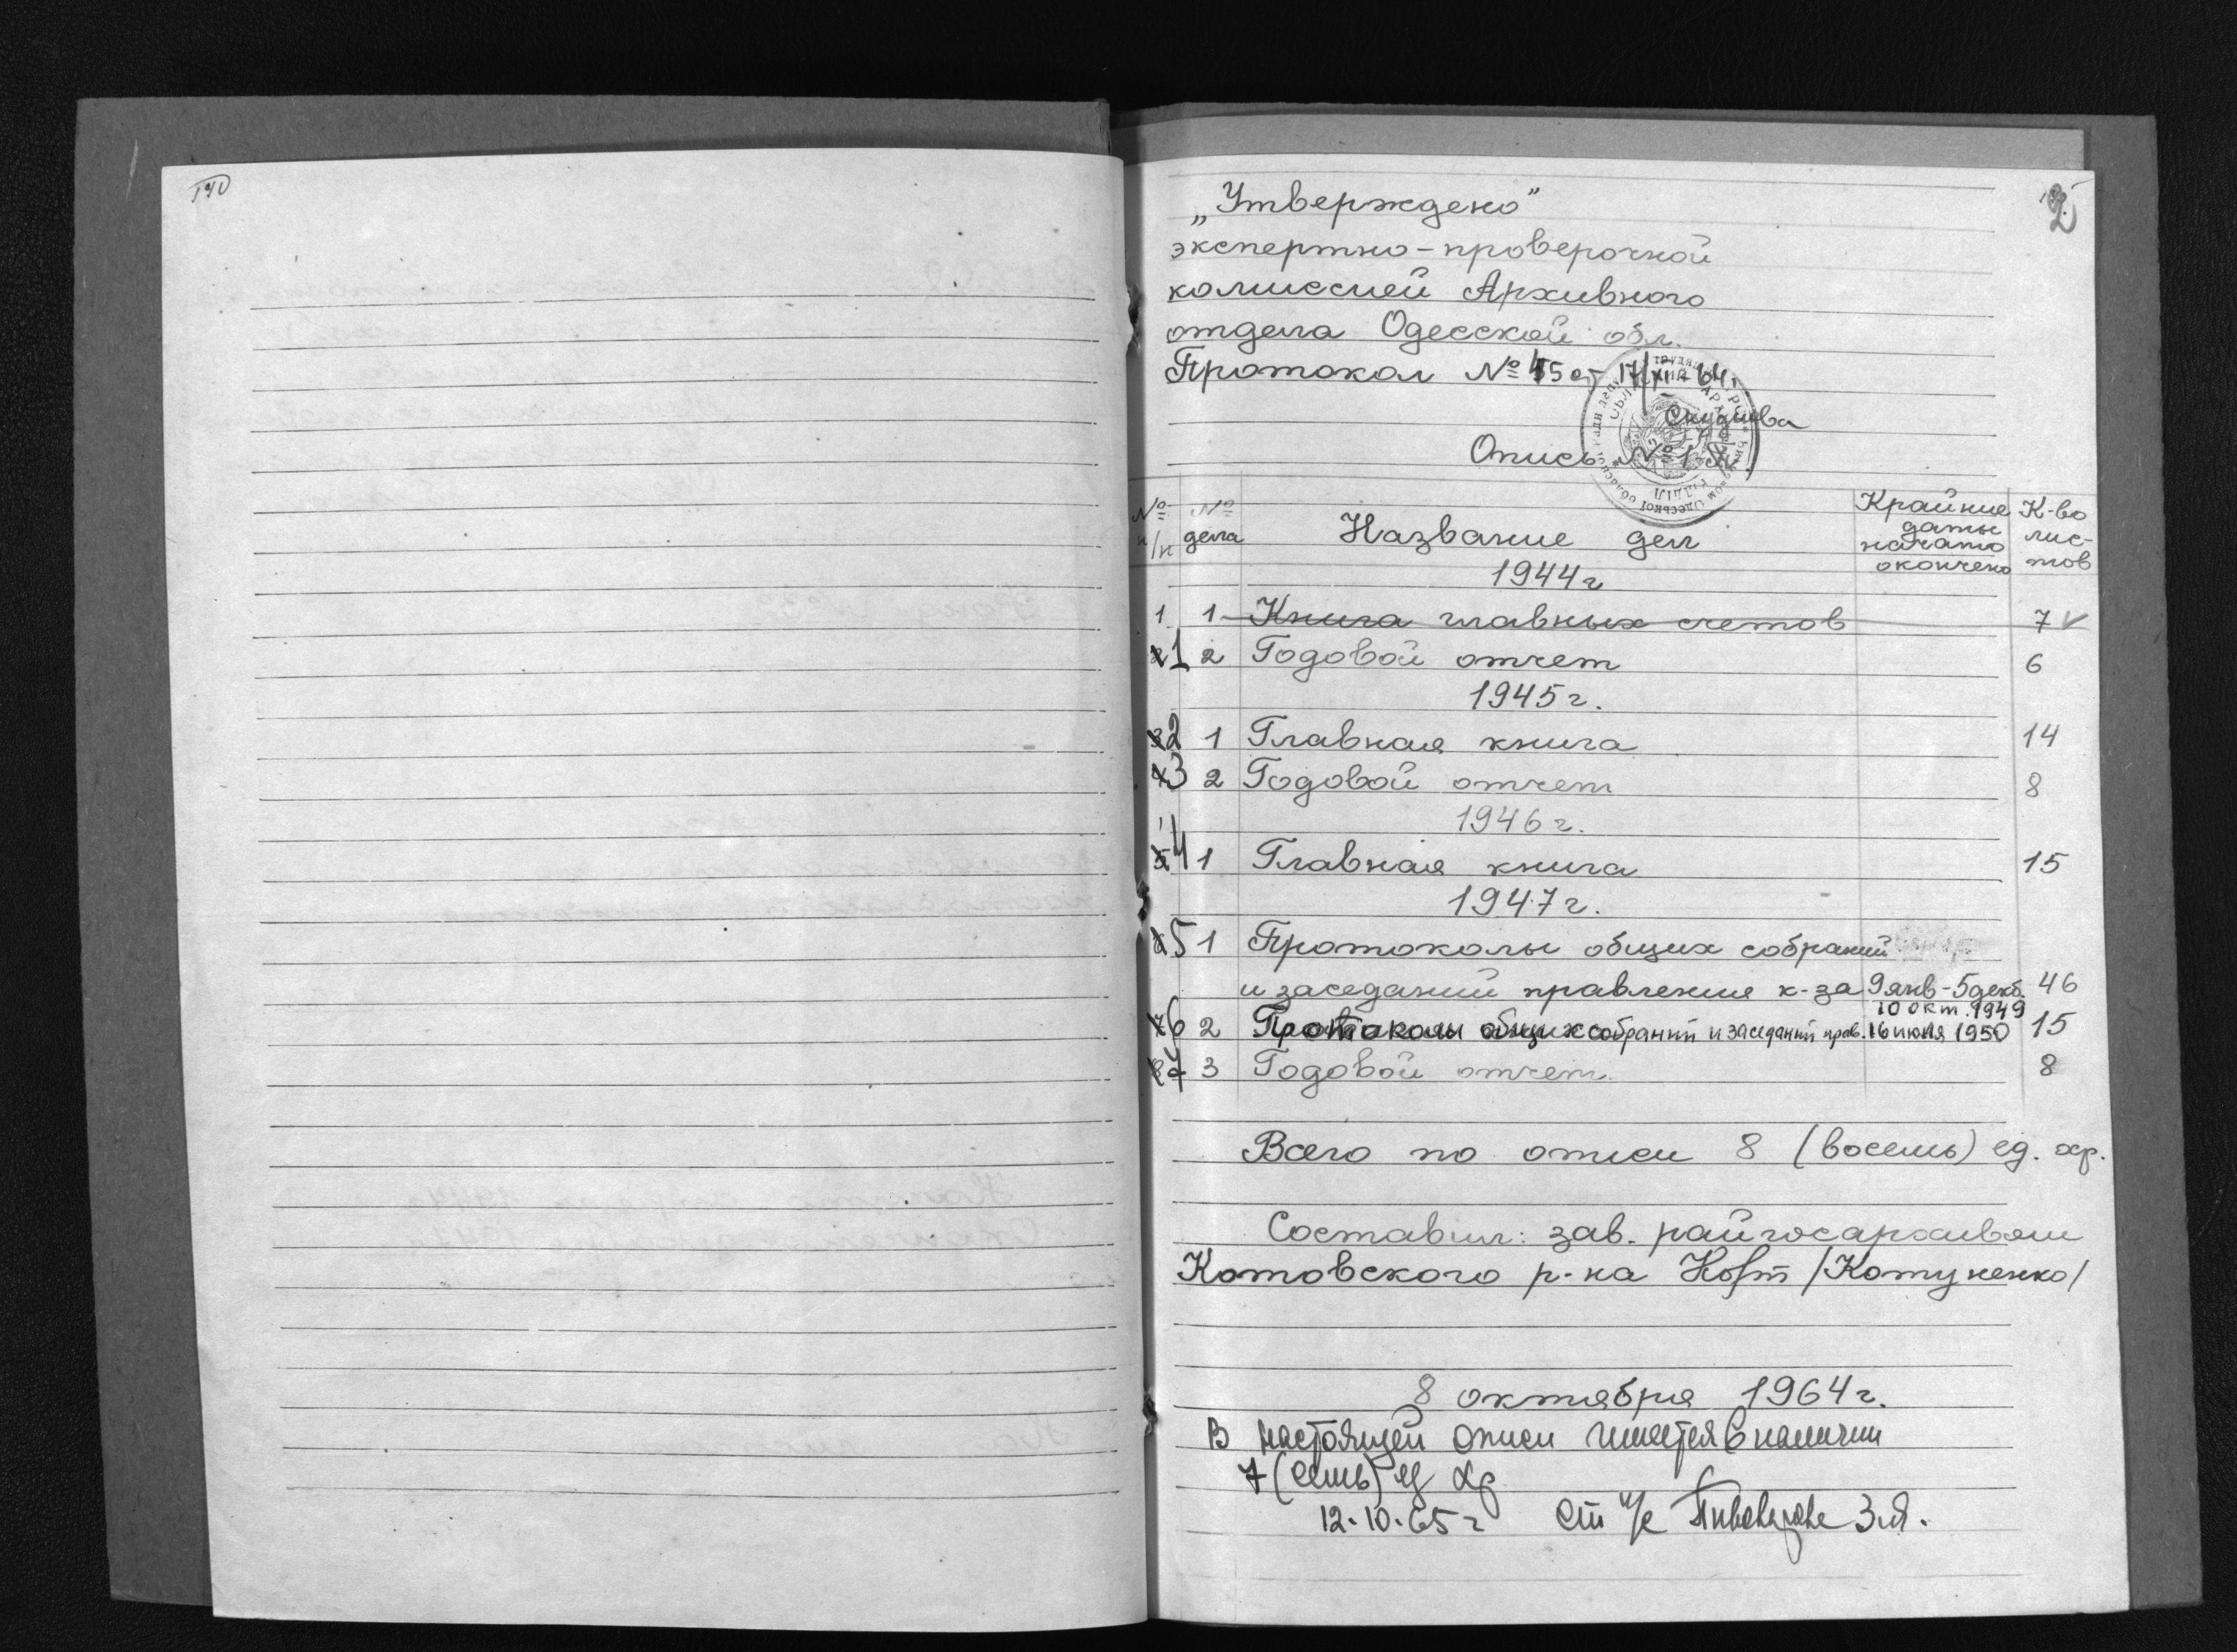 „Утверждено"
экспертно-проверочной
комиссией Архивного
отдела Одесской обл.
Протокол № 45 от 17/XI-64г.
Опись № 1
№ п/п № дела Название дел Крайние даты начато окончено К-во лис-тов
1944г
1 1 Книга главных счетов 7 ✓
1 2 Годовой отчет 6
1945г.
2 1 Главная книга 14
3 2 Годовой отчет 8
1946г.
4 1 Главная книга 15
1947г.
5 1 Протоколы общих собраний
и заседаний правления к-за 9 янв-5 декб. 46
10 окт. 1949
6 2 Протоколы общих собраний и заседаний прав. 16 июля 1950 15
7 3 Годовой отчет. 8
Всего по описи 8 (восемь) ед. хр.
Составил: зав. райгосархивом
Котовского р-на /Котуненко/
8 октября 1964г.
В настоящей описи имеется в наличии
7 (семь) ед хр
12.10.65г ст н/с З.Я.